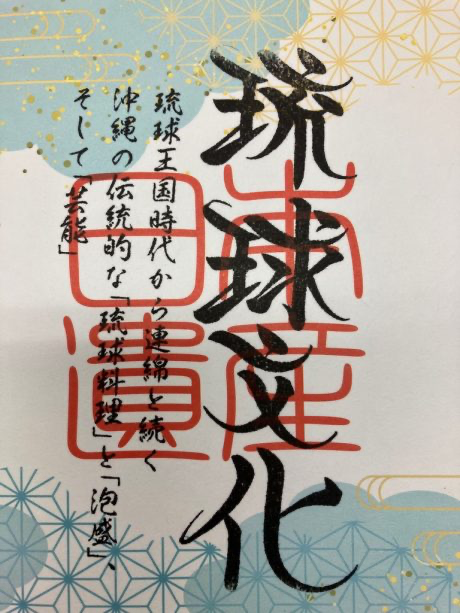 琉球文化
琉球王国時代から連綿と続く
沖縄の伝統的な「琉球料理」と「泡盛」、
そして「芸能」
日本
遺産